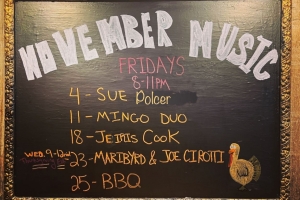 NOVEMBER MUSIC
FRIDAYS
8-11PM
4 - SUE Polcer
11 - MINGO DUO
18 - JEMIS COOK
WED. 9-12 23 - MARIBYRD & JOE CIROTTI
25 - BBQ